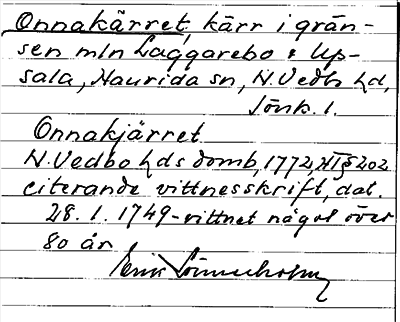 Onnakärret, kärr i grän-
sen mln Laggarebo & Up-
sala, Haurida sn, N. Vedbo hd,
Jönk. l.
Onnakjärret
N. Vedbo hds domb, 1772, HT § 202
citerande vittnesskrift, dat.
28. 1. 1749 - vittnet något över
80 år
Erik Lönnerholm